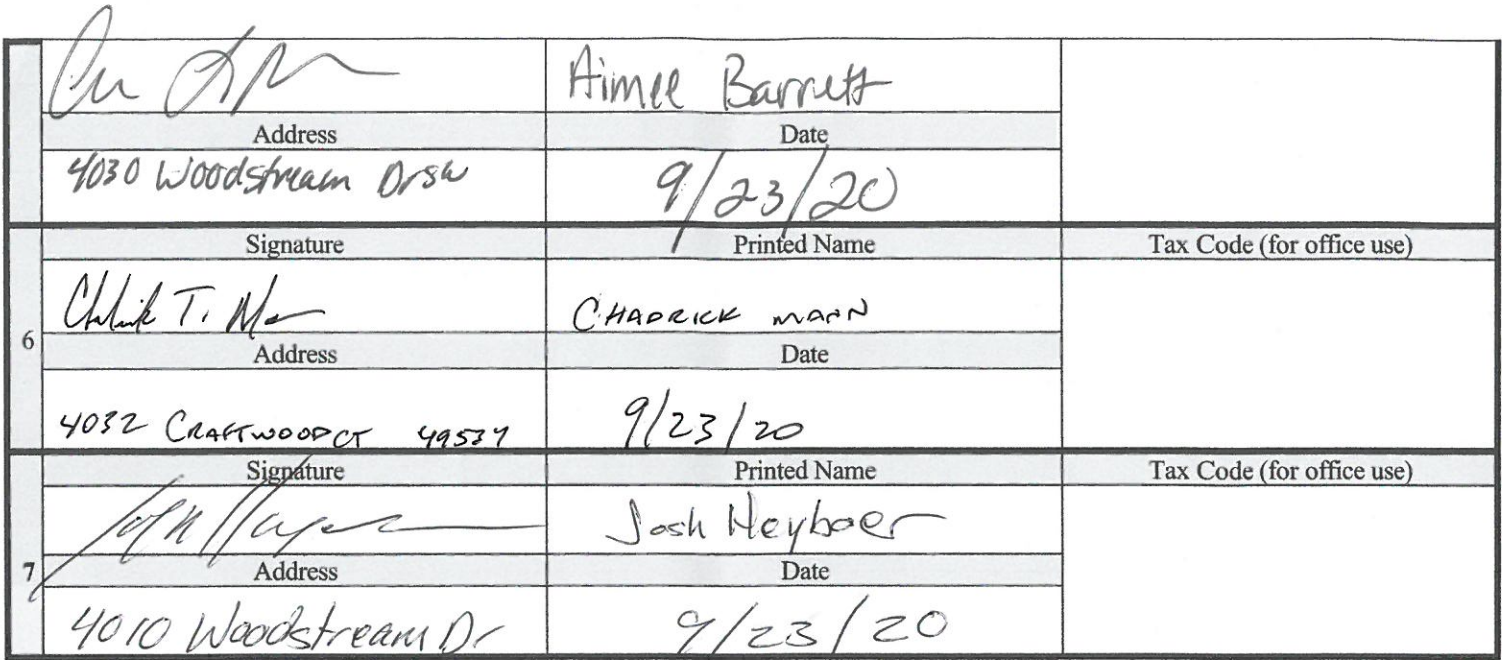 Aimee Barrett
Address Date
4030 Woodstream Dr SW 9/23/20
Signature Printed Name Tax Code (for office use)
6 CHADRICK MANN
Address Date
4032 CRAFTWOOD CT 49534 9/23/20
Signature Printed Name Tax Code (for office use)
7 Josh Heyboer
Address Date
4010 Woodstream Dr 9/23/20